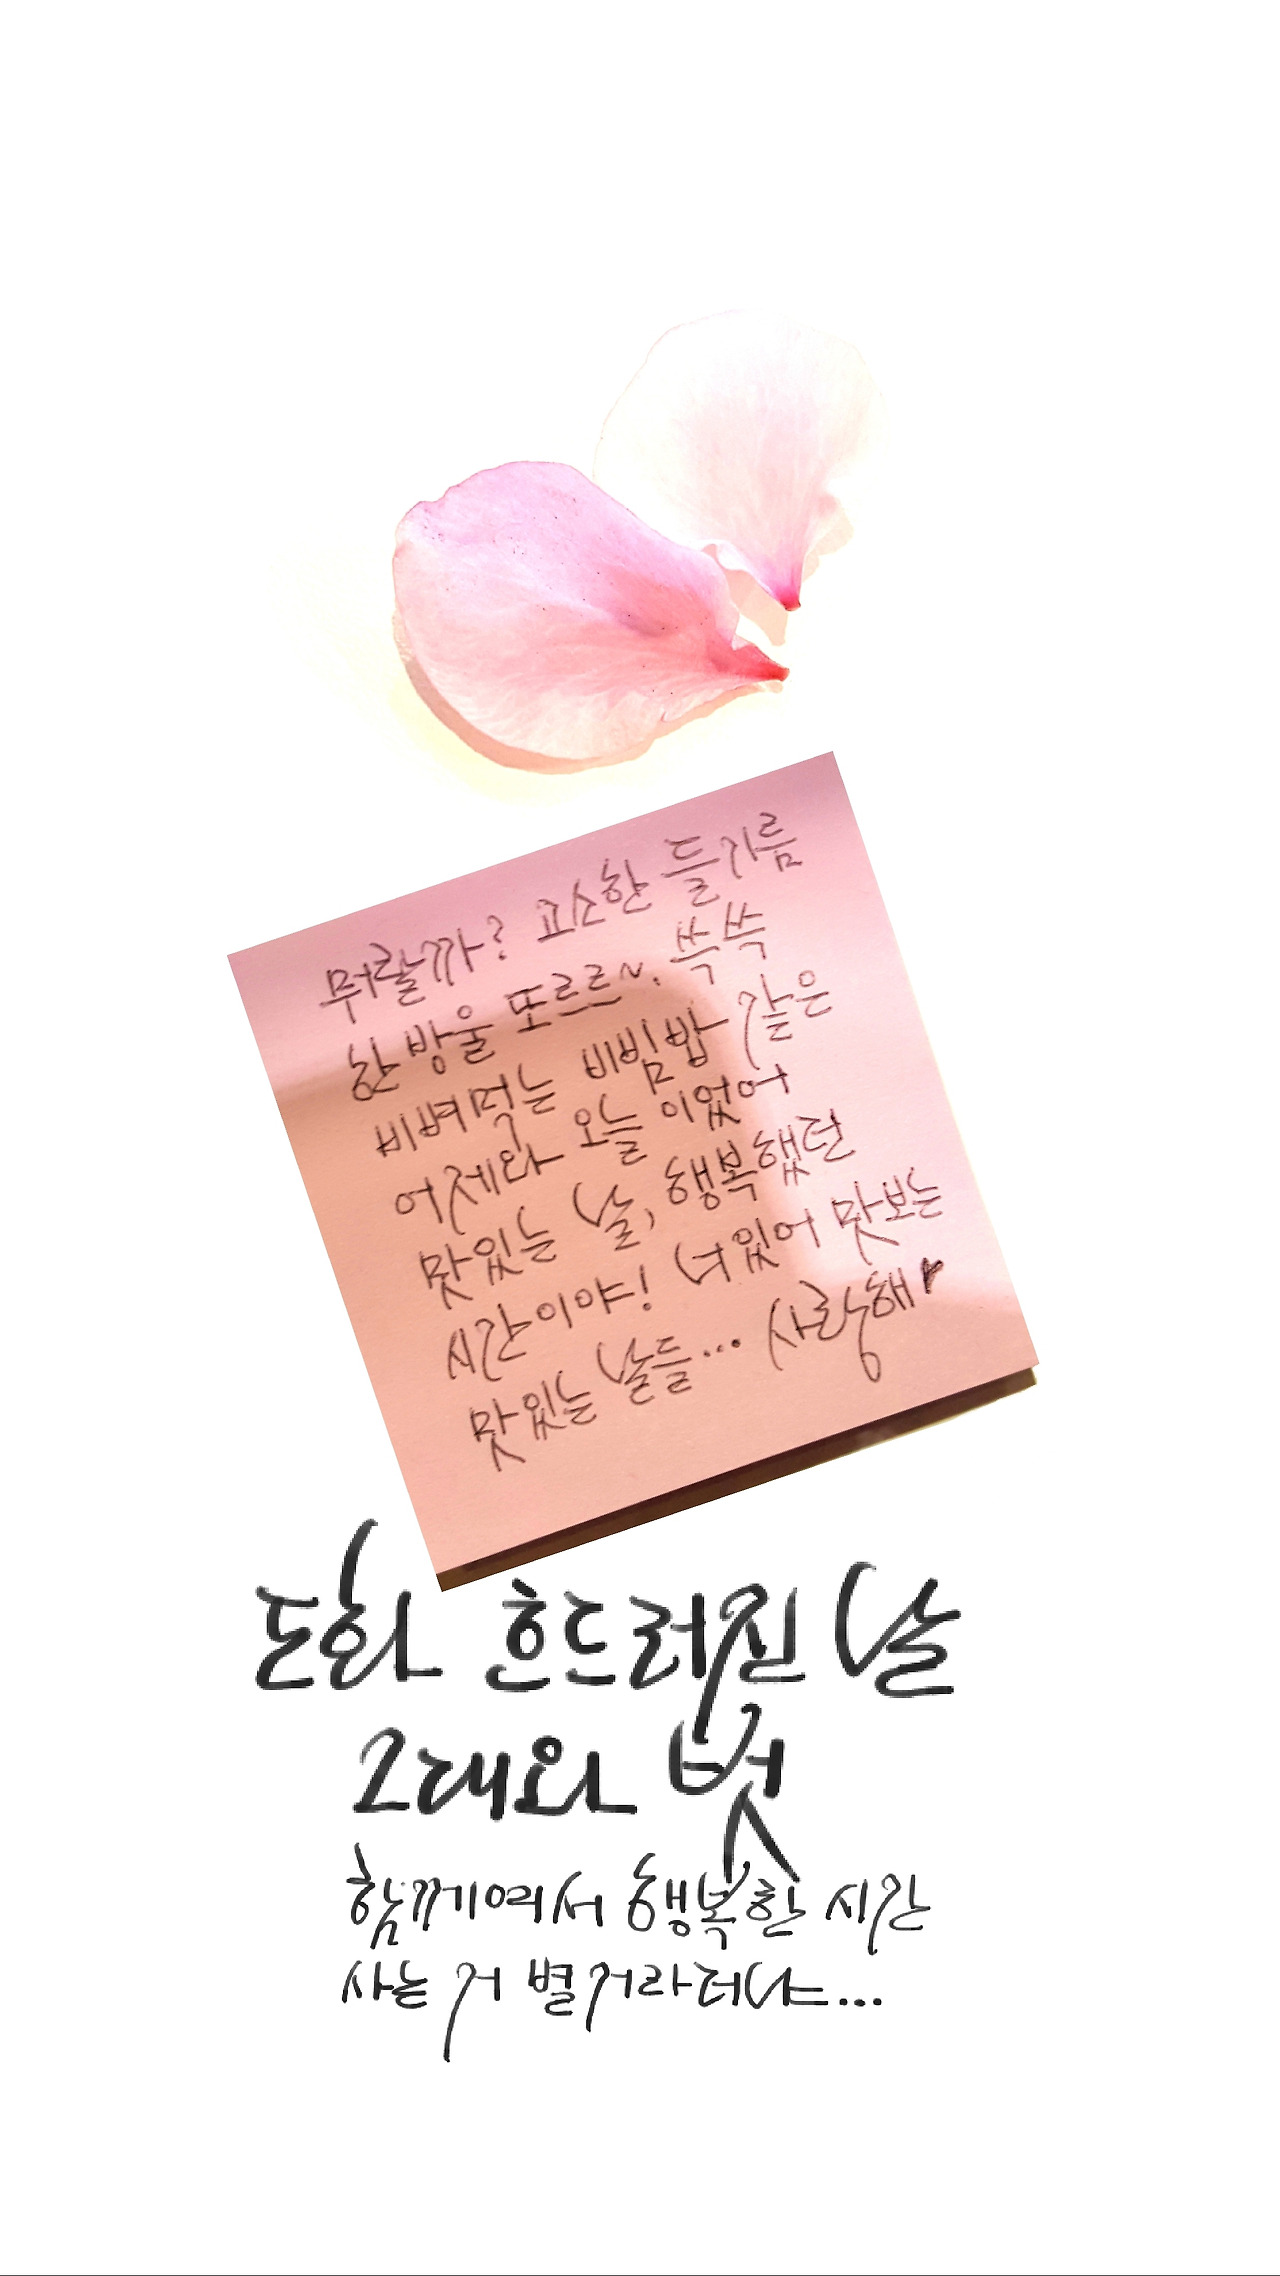 뭐랄까? 고소한 들기름
한 방울 또르르~. 쓱쓱
비벼먹는 비빔밥 같은
어제와 오늘이었어
맛있는 날, 행복했던
시간이야! 너 있어 맛보는
맛있는 날들... 사랑해♥
도화 흐드러진 날
그대와 벗
함께여서 행복한 시간
사는 거 별거라더냐...